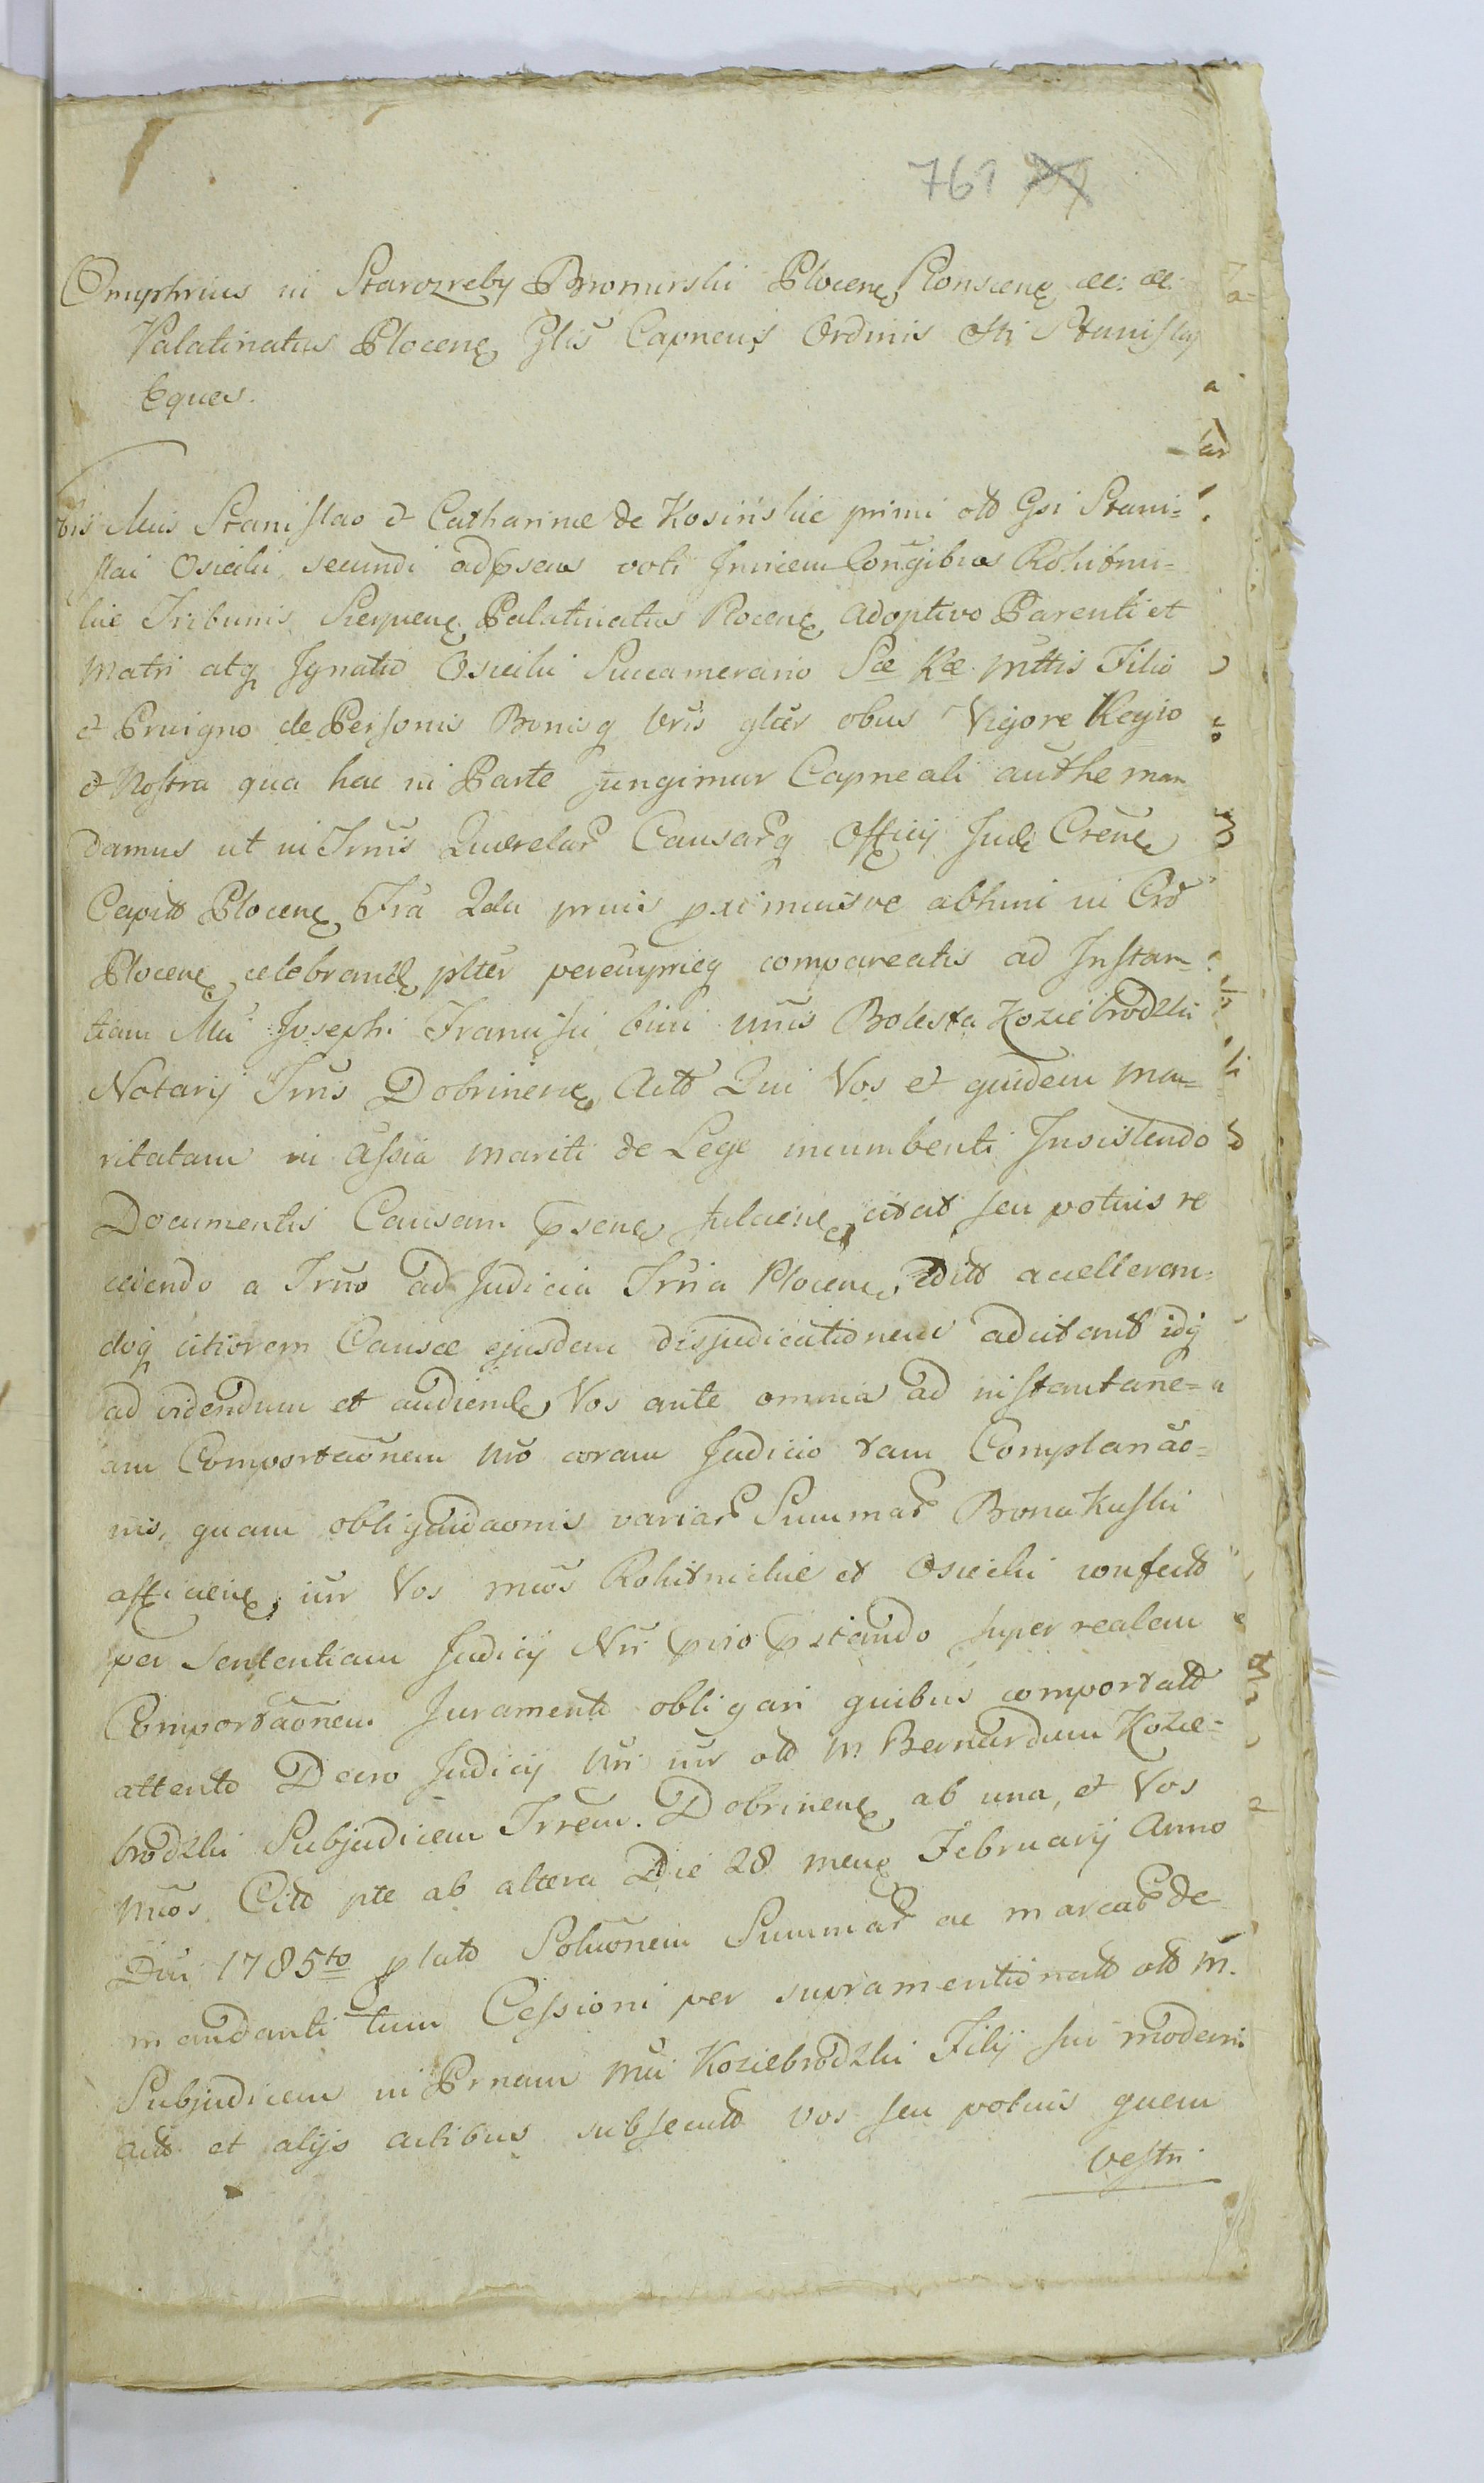 761
Onuphrius in Starozreby Bromirski Plocens Ronscens &c: &c:
Palatinatus Plocens Glis Capneus Ordinis Sti Stanislaj
Eques.
Mcis Stanislao et Catharinae de Kosinskie primi olt Gsi Stani-
slai Osiecki secundi ad psens voti Invicem Congibus Rokitni-
kie Tribunis Sierpens Palatinatus Plocens Adoptivo Parenti et
Matri atq Ignatio Osiecki Succamerario Sae Rae Mttis Filio
et Privigno de Personis Bonisq Vris gltr obus Vigore Regio
et Nostra qua hac in Parte fungimur Capneali authe man
damus ut in Trnis Querelar Causarq Officij Jud Crens
Capitt Plocens Fra 2da pmis pximisve abhinc in Crd
Plocens celebrand pltr peremprieq compareatis ad Instan-
tiam Mci Josephi Francisci bini nnis Bolesta Koziebrodzki
Notarij Trris Dobrinens Actt Qui Vos et quidem ma-
ritatam in assia Mariti de Lege incumbenti Insistendo
Documentis Causam psens fulciens citat seu potius re
iiciendo a Trno ad Judicia Trria Plocens editt accelleran-
doq citiorem Causae ejusdem disjudicationem adcitant idq
ad videndum et audiend Vos ante omnia ad instantane-
am Comportaonem Nro coram Judicio tam Complanao-
nis, quam obligaidaonis variar Summar Bona Kuski
afficiens, intr Vos Mcos Rokitnickie et Osiecki confectt
per Sententiam Judicij Nri pvio pstando super realem
Comportaonem Juramento obligari quibus comportatt
attento Decro Judicij Nri intr olt M. Bernardum Kozie-
brodzki Subjudicem Trrem. Dobrinens ab una, et Vos
Mcos Citt pte ab altera Die 28 mens Februarij Anno
Dni 1785to plato Soluonem Summar ac marcar de-
mandanti tum Cessioni per supramentionatt olt M.
Subjudicem in Prnam Mci Koziebrodzki Filij sui moderni
actt et alijs actibus subsecutt vos seu potius quem
vestri